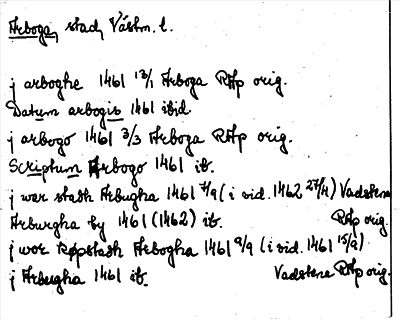 Arboga, stad, Västm. l.
j arboghe 1461 13/1 Arboga RAp orig.
Datum arbogis 1461 ibid.
j arbogo 1461 3/3 Arboga RAp orig.
Scriptum Arbogo 1461 ib.
j wor stadh Arbugha 1461 7/9 (i vid. 1462 27/4) Vadstena
Arburgha by 1461 (1462) ib. RAp orig.
j wor køpstadh Arbogha 1461 9/9 (i vid. 1461 15/9)
j Arbugha 1461 ib. Vadstena RAp orig.